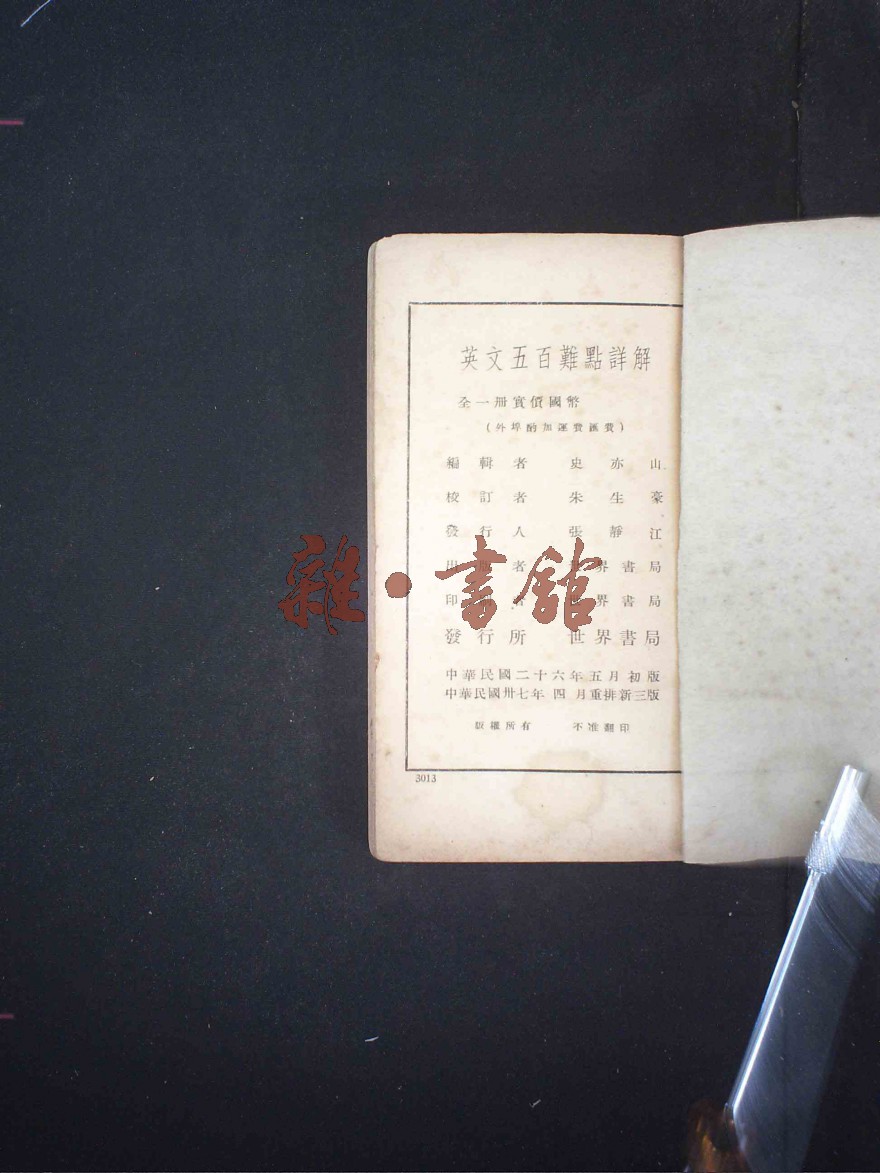 英文五百難點詳解
全一册實價國幣
(外埠酌加運費滙費)
編輯者 史亦山
校訂者 朱生豪
發行人 張靜江
出版者 世界書局
印刷者 世界書局
發行所 世界書局
中華民國二十六年五月初版
中華民國卅七年四月重排新三版
版權所有 不准翻印
3013
雜·書館